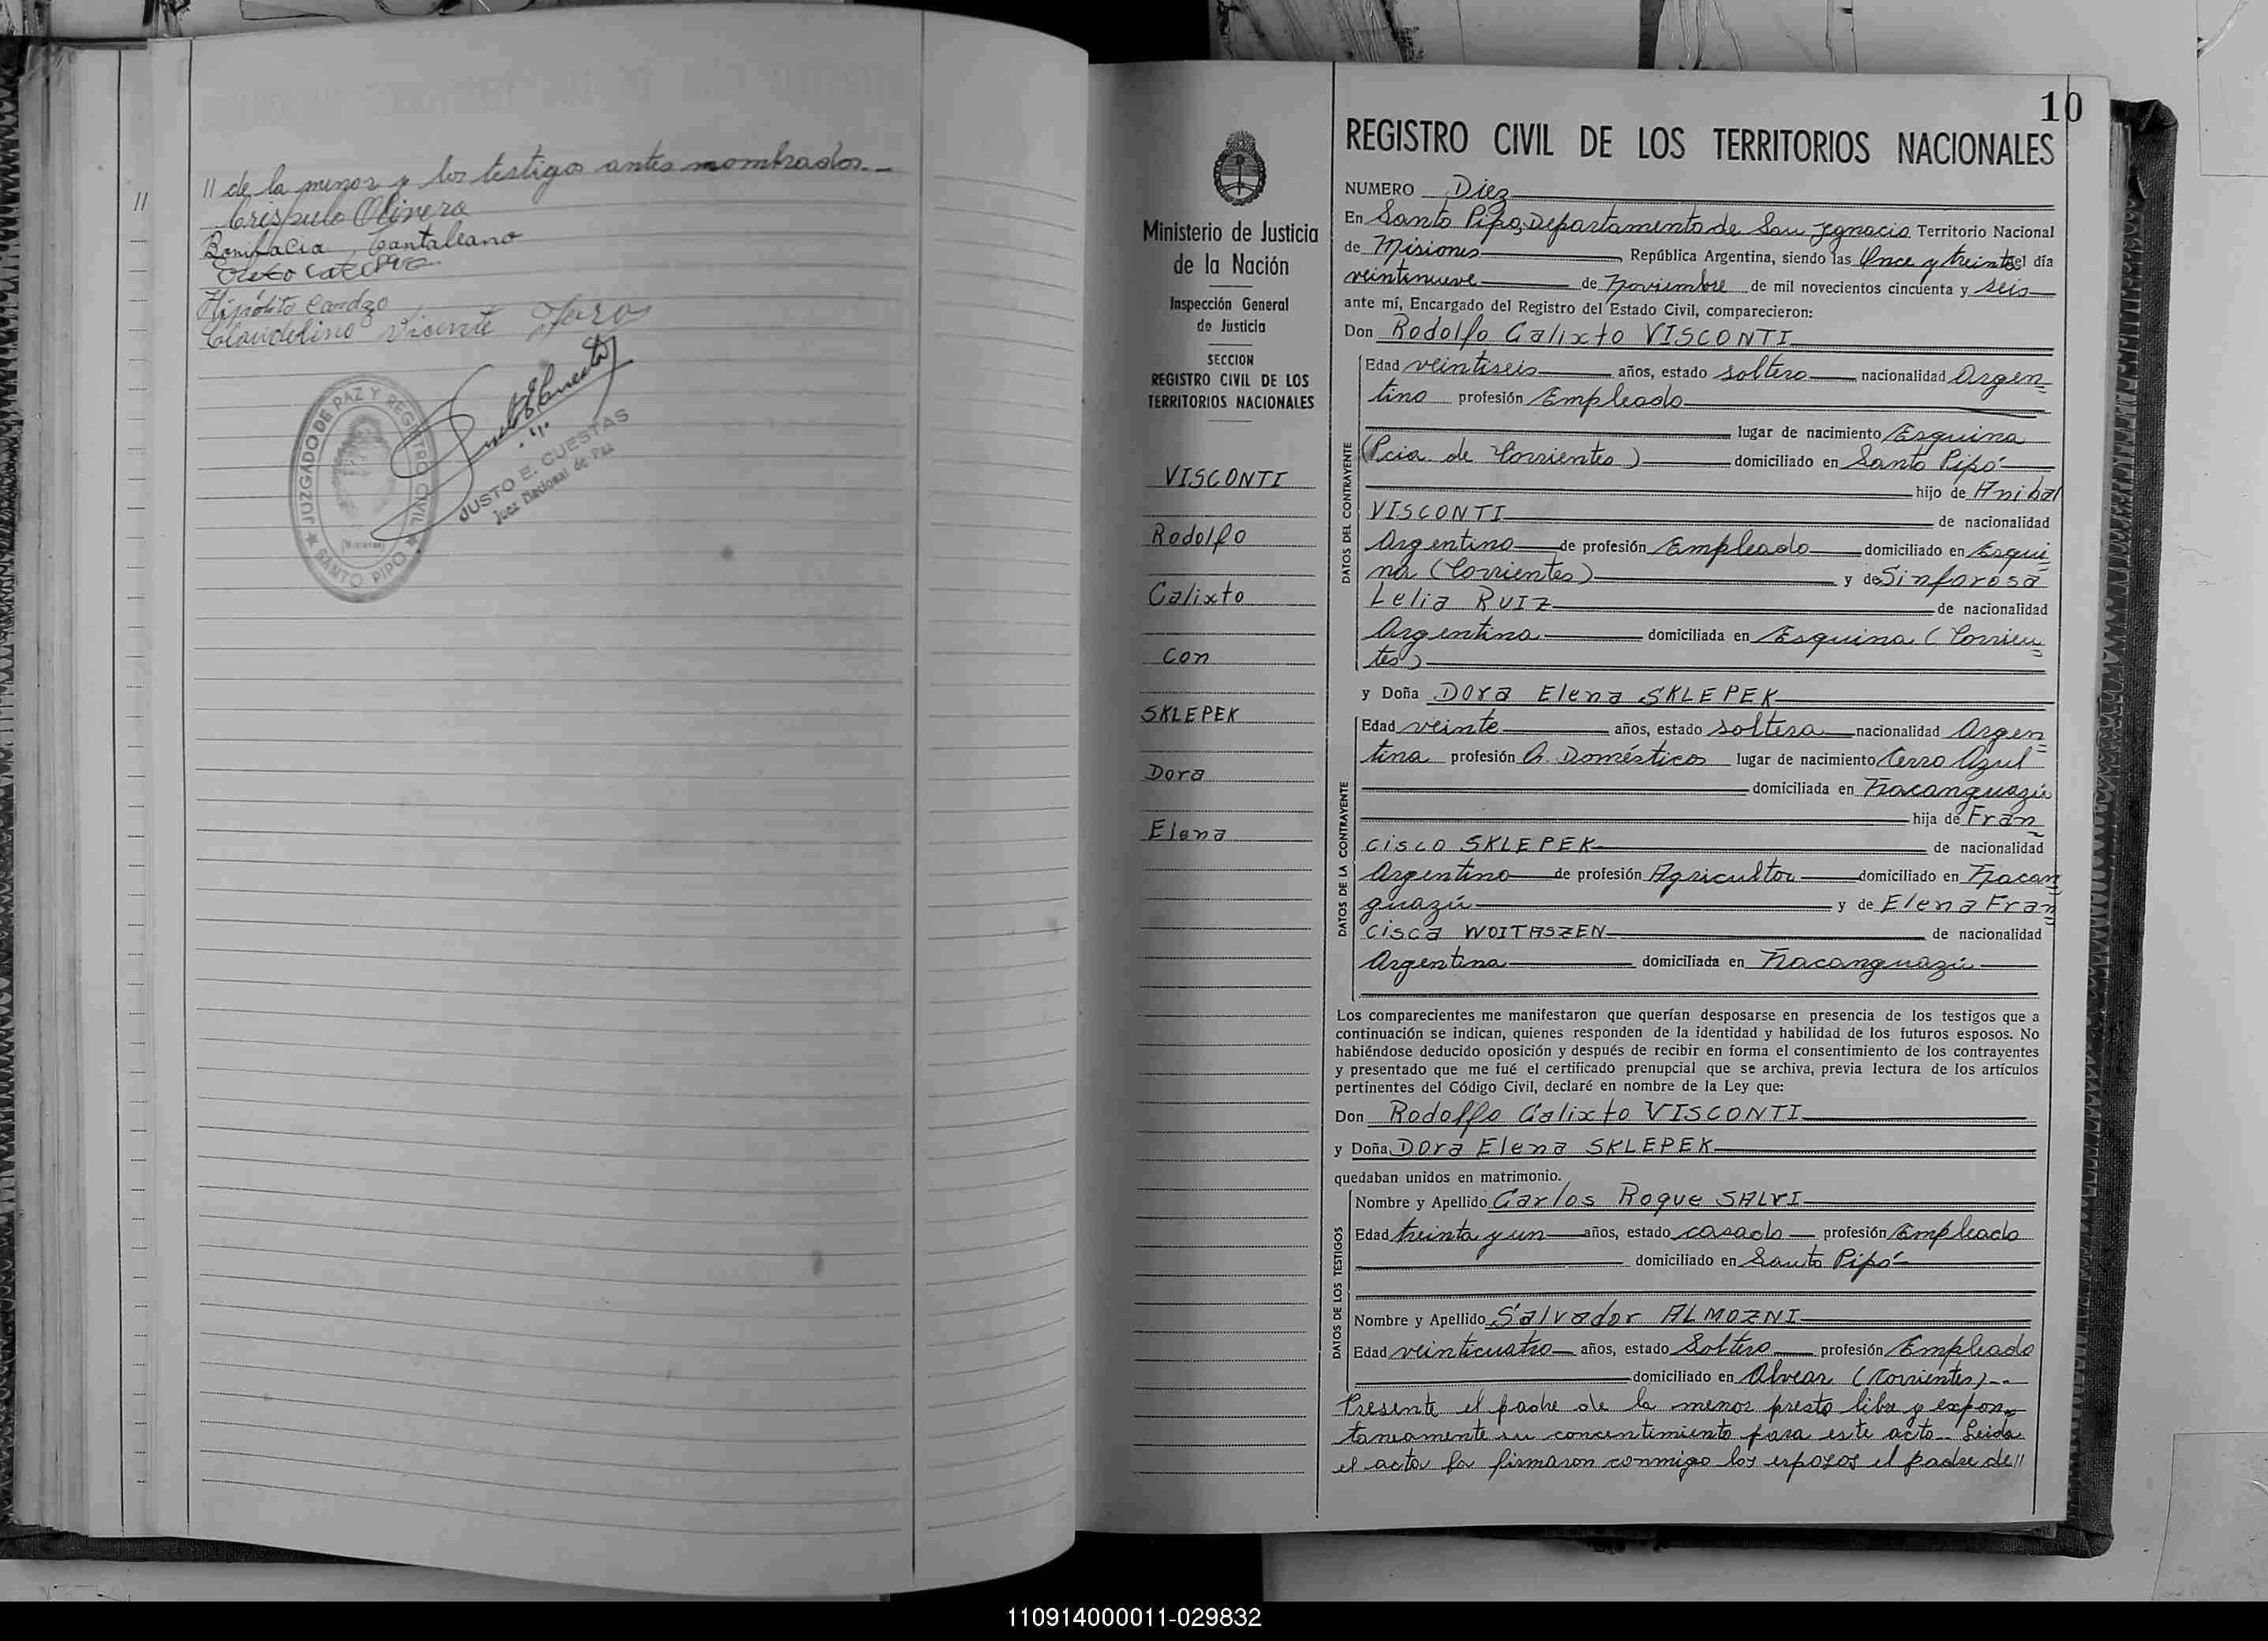 // de la menor y los testigo antes nombrados.-
Crispulo Olivera
Bonifacia Cantaleano
Hipólito Cardzo
Claudelino Vicente
JUZGADO DE PAZ Y REGISTRO CIVIL
SANTO PIPO
(Misiones)
JUSTO E. CUESTAS
Juez Nacional de Paz
//
10
Ministerio de Justicia
de la Nación
Inspección General
de Justicia
SECCION
REGISTRO CIVIL DE LOS
TERRITORIOS NACIONALES
VISCONTI
Rodolfo
Calixto
Con
SKLEPEK
Dora
Elena
REGISTRO CIVIL DE LOS TERRITORIOS NACIONALES
NUMERO Diez
En Santo Pipó, Departamento de San Ignacio Territorio Nacional
de Misiones República Argentina, siendo las Once y treinta el día
veintinueve de Noviembre de mil novecientos cincuenta y seis
ante mí, Encargado del Registro del Estado Civil, comparecieron:
Don Rodolfo Calixto VISCONTI
DATOS DEL CONTRAYENTE
Edad veintiseis años, estado soltero nacionalidad Argen=
tino profesión Empleado
lugar de nacimiento Esquina
(Pcia de Corrientes) domiciliado en Santo Pipó
hijo de Anibal
VISCONTI de nacionalidad
Argentino de profesión Empleado domiciliado en Esqui=
na (Corrientes) y de Sinforosa
Lelia RUIZ de nacionalidad
Argentina domiciliada en Esquina (Corrien=
tes)
y Doña Dora Elena SKLEPEK
DATOS DE LA CONTRAYENTE
Edad veinte años, estado soltera nacionalidad Argen=
tina profesión Q. Domésticos lugar de nacimiento Cerro Azul
domiciliada en Ñacanguazú
hija de Fran=
cisco SKLEPEK de nacionalidad
Argentino de profesión Agricultor domiciliado en Ñacan=
guazú y de Elena Fran=
cisca WOITASZEN de nacionalidad
Argentina domiciliada en Ñacanguazú
Los comparecientes me manifestaron que querían desposarse en presencia de los testigos que a
continuación se indican, quienes responden de la identidad y habilidad de los futuros esposos. No
habiéndose deducido oposición y después de recibir en forma el consentimiento de los contrayentes
y presentado que me fué el certificado prenupcial que se archiva, previa lectura de los artículos
pertinentes del Código Civil, declaré en nombre de la Ley que:
Don Rodolfo Calixto VISCONTI
y Doña Dora Elena SKLEPEK
quedaban unidos en matrimonio.
DATOS DE LOS TESTIGOS
Nombre y Apellido Carlos Roque SALVI
Edad treinta y un años, estado casado profesión Empleado
domiciliado en Santo Pipó
Nombre y Apellido Salvador ALMOZNI
Edad veinticuatro años, estado Soltero profesión Empleado
domiciliado en Alvear (Corrientes).-
Presente el padre de la menor presta libre y expon=
taneamente su concentimiento para este acto.- Leida
el acta la firmaron conmigo los esposos el padre de//
110914000011-029832